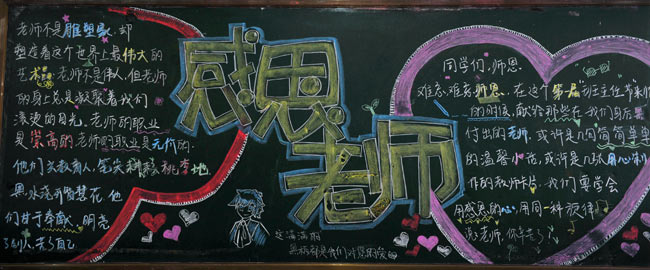 老师不是雕塑家,却
塑造着这个世界上最伟大的
艺术。老师不是伟人,但老师
的身上总是凝聚着我们
滚烫的目光。老师的职业
是崇高的,老师的职业是无价的
他们为教育人,笔尖耕耘桃李地
墨水浇开智慧花。他
们甘于奉献,明亮
了别人老了自己
感恩
老师
同学们,师恩
难忘,难忘师恩。在这个第一届班主任节来临
的时候,献给那些在我们身后默
付出的老师,或许是几句简简单单
的温馨小花,或许是几张用心制
作的教师卡片。我们要学会
用感恩的心,用同一种旋律
说老师,你辛苦了